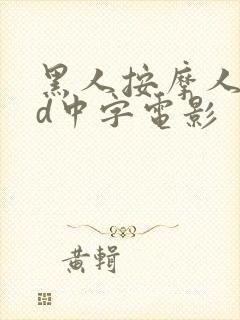 黑人按摩人
d中字電影
黃輯